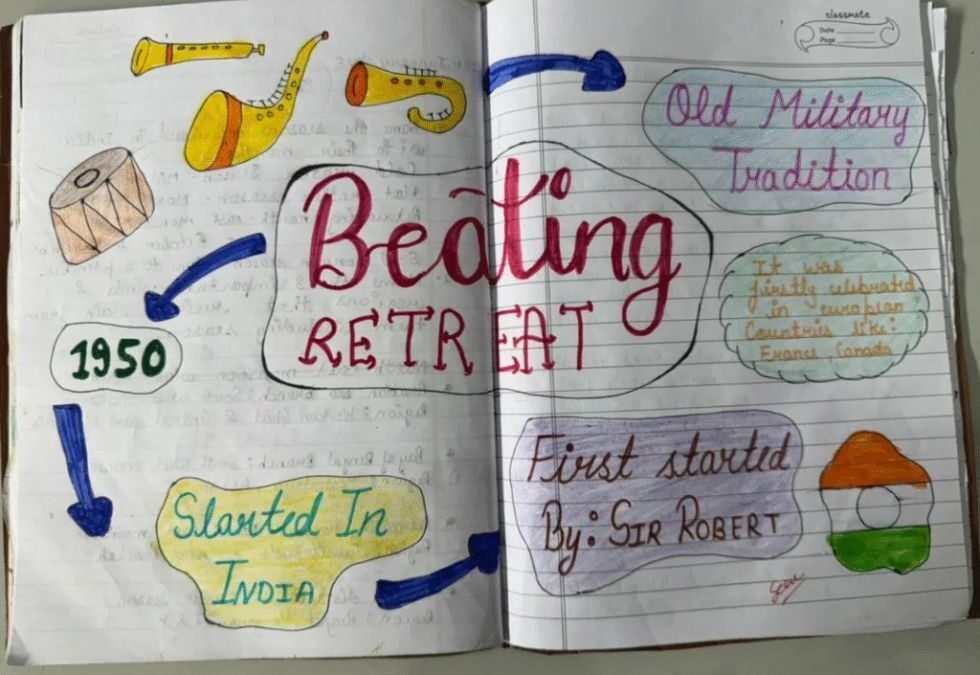 classmate
Date
Page
Old Military
Tradition
Beating
RETREAT
It was
firstly celebrated
in european
Countries like:
France, Canada
1950
First started
By: SIR ROBERT
Started In
INDIA